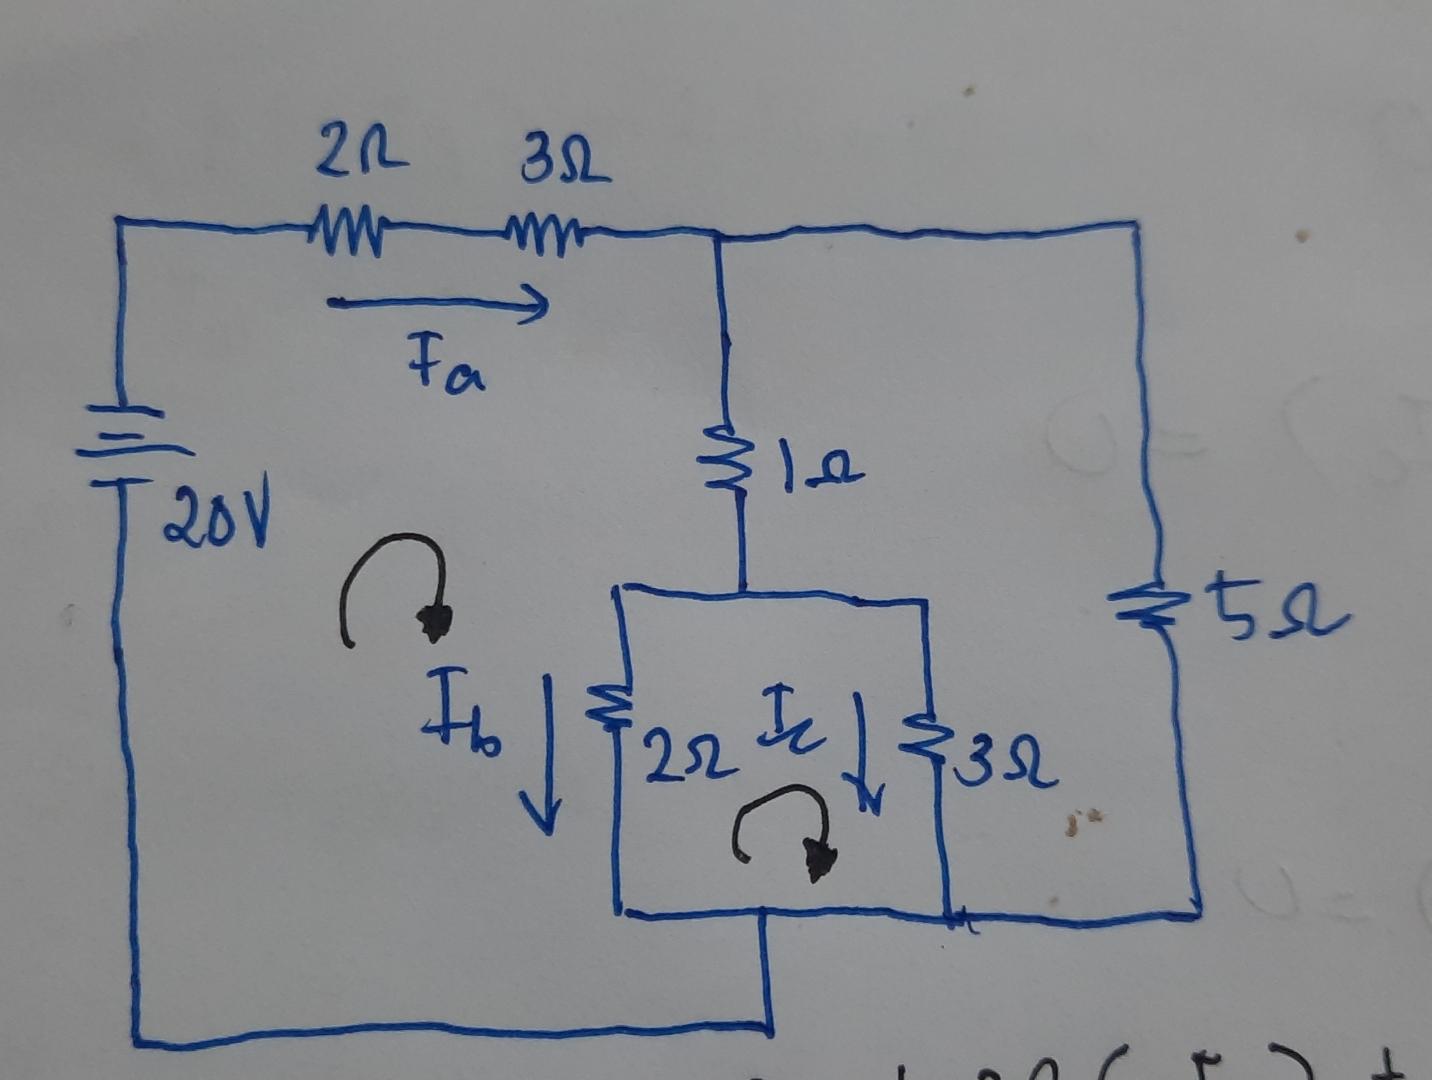 2Ω 3Ω
Ia
1Ω
20V
5Ω
Ib 2Ω Ic 3Ω